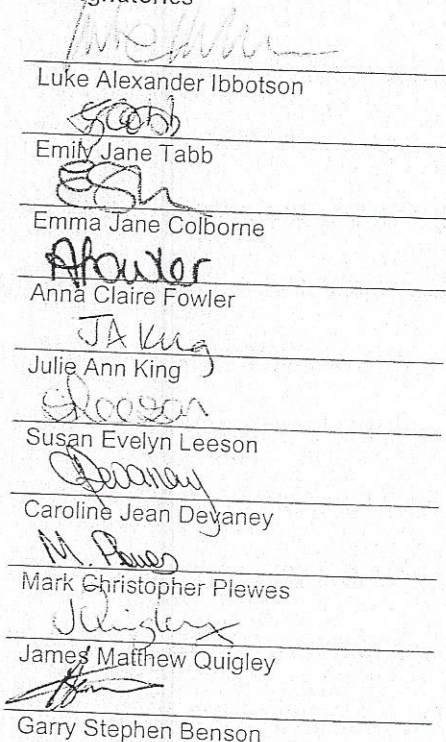 Luke Alexander Ibbotson
Emily Jane Tabb
Emma Jane Colborne
AFowler
Anna Claire Fowler
JA King
Julie Ann King
SLeeson
Susan Evelyn Leeson
CDevaney
Caroline Jean Devaney
M. Plewes
Mark Christopher Plewes
JQuigley
James Matthew Quigley
Garry Stephen Benson